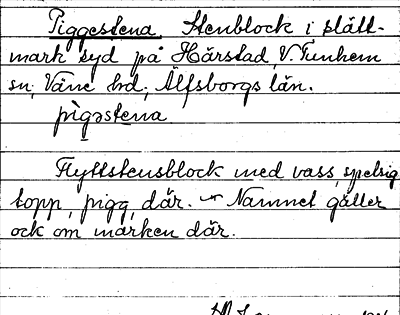 Piggestena Stenblock i slätt-
mark syd på Hårstad, V. Tunhem
sn, Väne hd, Älfsborgs län.
pìgəstena
Flyttstensblock med vass, spetsig
topp, pigg, där. Namnet gäller
ock om marken där.